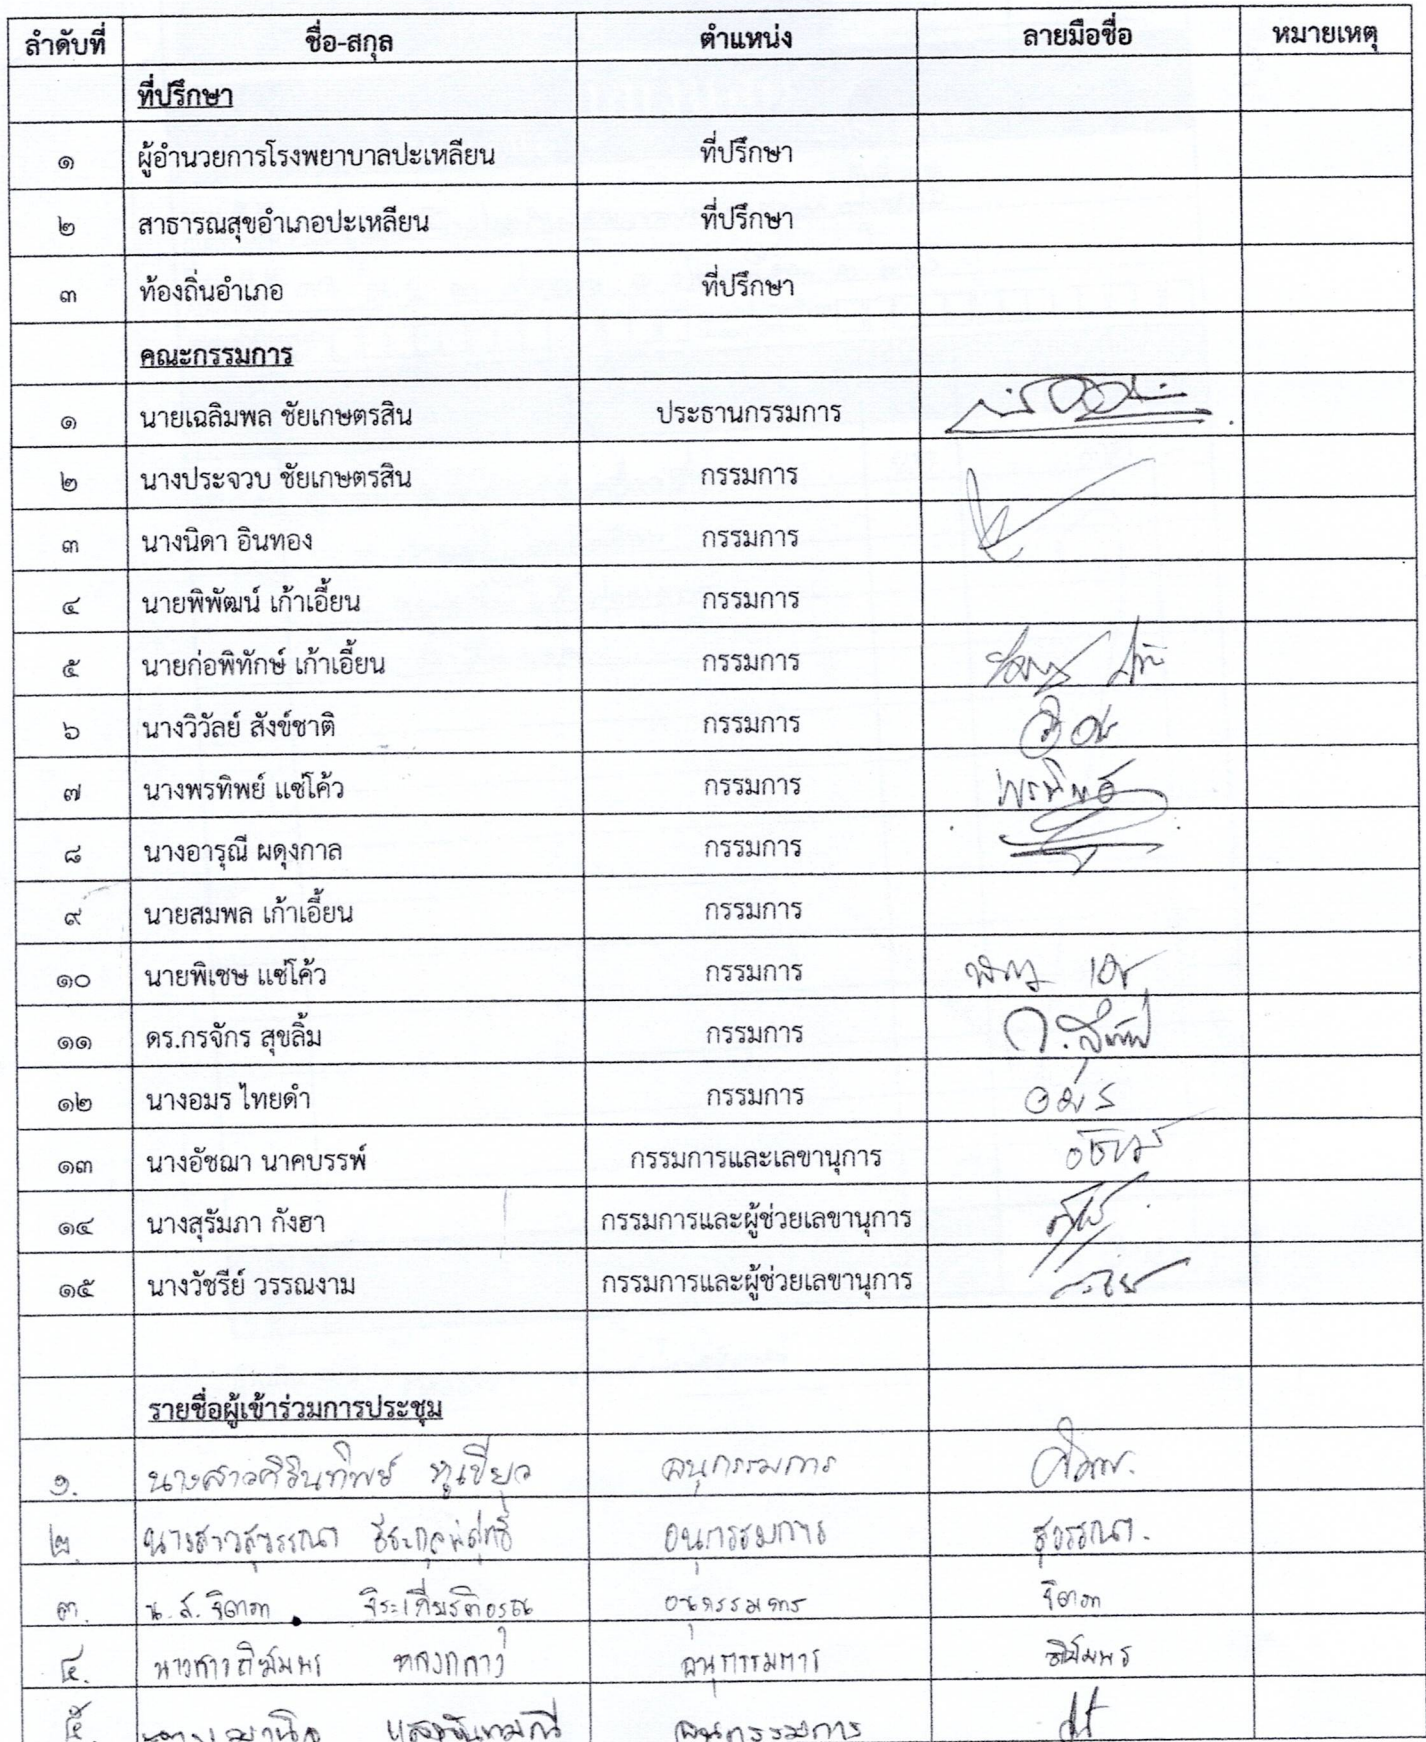 ลำดับที่ ชื่อ-สกุล ตำแหน่ง ลายมือชื่อ หมายเหตุ
ที่ปรึกษา
๑ ผู้อำนวยการโรงพยาบาลปะเหลียน ที่ปรึกษา
๒ สาธารณสุขอำเภอปะเหลียน ที่ปรึกษา
๓ ท้องถิ่นอำเภอ ที่ปรึกษา
คณะกรรมการ
๑ นายเฉลิมพล ชัยเกษตรสิน ประธานกรรมการ
๒ นางประจวบ ชัยเกษตรสิน กรรมการ
๓ นางนิดา อินทอง กรรมการ
๔ นายพิพัฒน์ เก้าเอี้ยน กรรมการ
๕ นายก่อพิทักษ์ เก้าเอี้ยน กรรมการ
๖ นางวิวัลย์ สังข์ชาติ กรรมการ
๗ นางพรทิพย์ แซ่โค้ว กรรมการ พรทิพย์
๘ นางอารุณี ผดุงกาล กรรมการ
๙ นายสมพล เก้าเอี้ยน กรรมการ
๑๐ นายพิเชษ แซ่โค้ว กรรมการ
๑๑ ดร.กรจักร สุขลิ้ม กรรมการ
๑๒ นางอมร ไทยดำ กรรมการ อมร
๑๓ นางอัชฌา นาคบรรพ์ กรรมการและเลขานุการ
๑๔ นางสุรัมภา กังฮา กรรมการและผู้ช่วยเลขานุการ
๑๕ นางวัชรีย์ วรรณงาม กรรมการและผู้ช่วยเลขานุการ
รายชื่อผู้เข้าร่วมการประชุม
๑. นางสาวศิรินทิพย์ หูเขียว อนุกรรมการ
๒. นางสาวสุวรรณา อนุกรรมการ สุวรรณา.
๓. น.ส. จิดาภา จิระเกียรติอรุณ อนุกรรมการ จิดาภา
๔. นางสาว อนุกรรมการ
๕. อนุกรรมการ